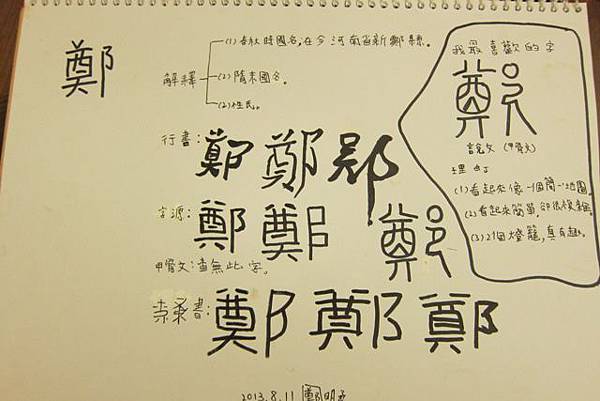 鄭
解釋
(1)春秋時國名,在今河南省新鄭縣。
(2)隋末國名。
(2)姓氏。
行書:鄭 鄭 鄭
字源:鄭 鄭 鄭
甲骨文:查無此字。
隸書:鄭 鄭 鄭
我最喜歡的字
鄭
說文(甲骨文)
理由
(1)看起來像一個簡一地圖。
(2)看起來簡單,卻很複雜。
(3)2個燈籠,真有趣。
2013.8.11 鄭明